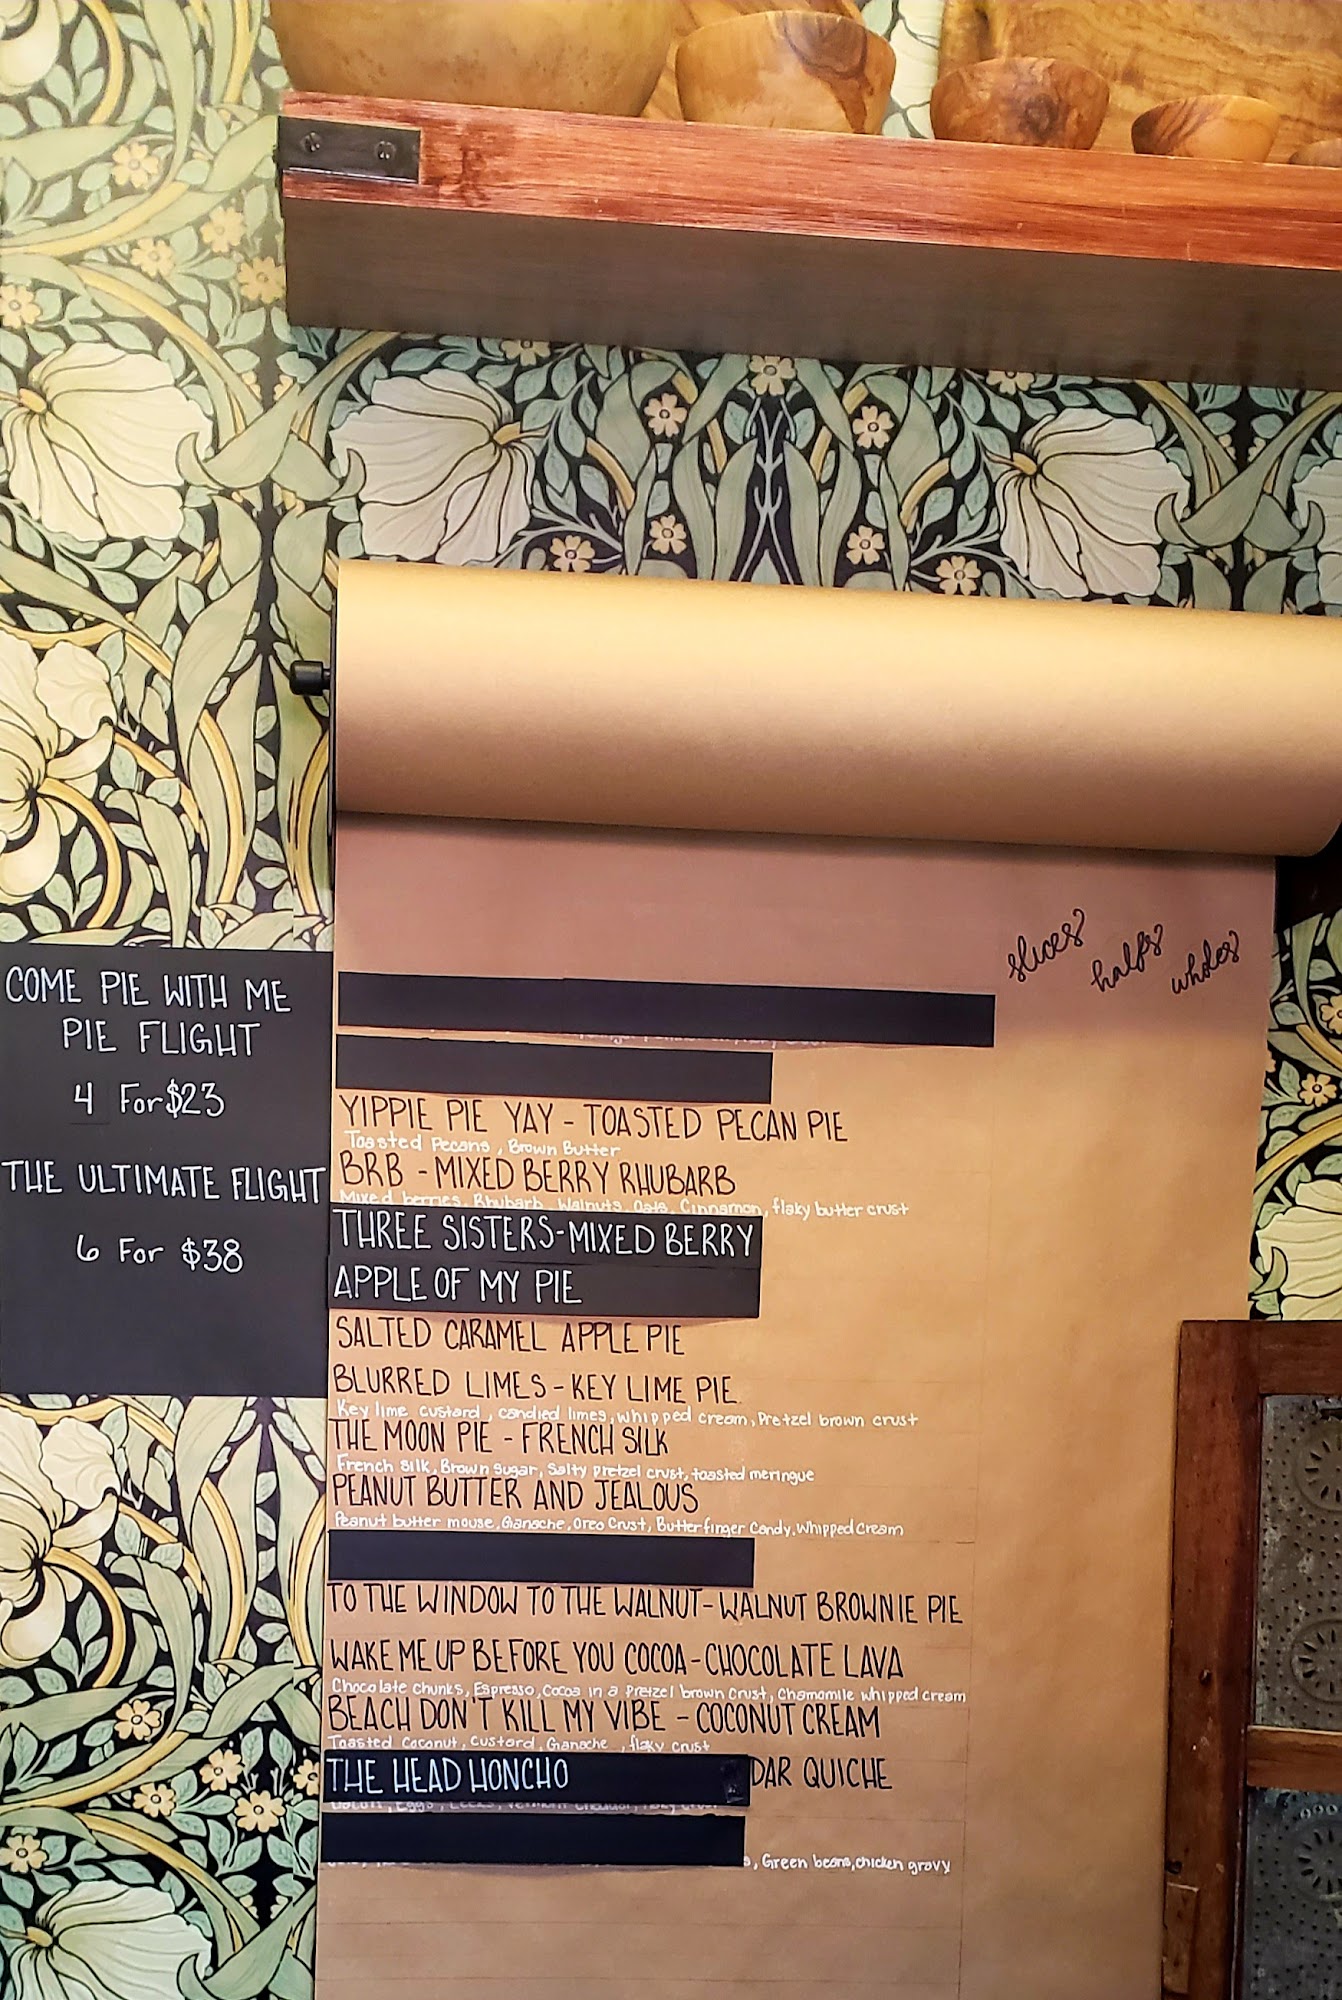 slices
halfs
wholes
COME PIE WITH ME
PIE FLIGHT
4 For $23
THE ULTIMATE FLIGHT
6 For $38
YIPPIE PIE YAY - TOASTED PECAN PIE
Toasted Pecans, Brown Butter
BRB - MIXED BERRY RHUBARB
Mixed berries, Rhubarb, Walnuts, Oats, Cinnamon, flaky butter crust
THREE SISTERS-MIXED BERRY
APPLE OF MY PIE
SALTED CARAMEL APPLE PIE
BLURRED LIMES - KEY LIME PIE
Key lime custard, candied limes, whipped cream, Pretzel brown crust
THE MOON PIE - FRENCH SILK
French silk, Brown Sugar, Salty pretzel crust, toasted meringue
PEANUT BUTTER AND JEALOUS
Peanut butter mouse, Ganache, Oreo Crust, Butterfinger Candy, Whipped Cream
TO THE WINDOW TO THE WALNUT - WALNUT BROWNIE PIE
WAKE ME UP BEFORE YOU COCOA - CHOCOLATE LAVA
Chocolate chunks, Espresso, Cocoa in a Pretzel brown crust, Chamomile whipped cream
BEACH DON'T KILL MY VIBE - COCONUT CREAM
Toasted Coconut, Custard, Ganache, flaky crust
THE HEAD HONCHO DAR QUICHE
s, Green beans, chicken gravy